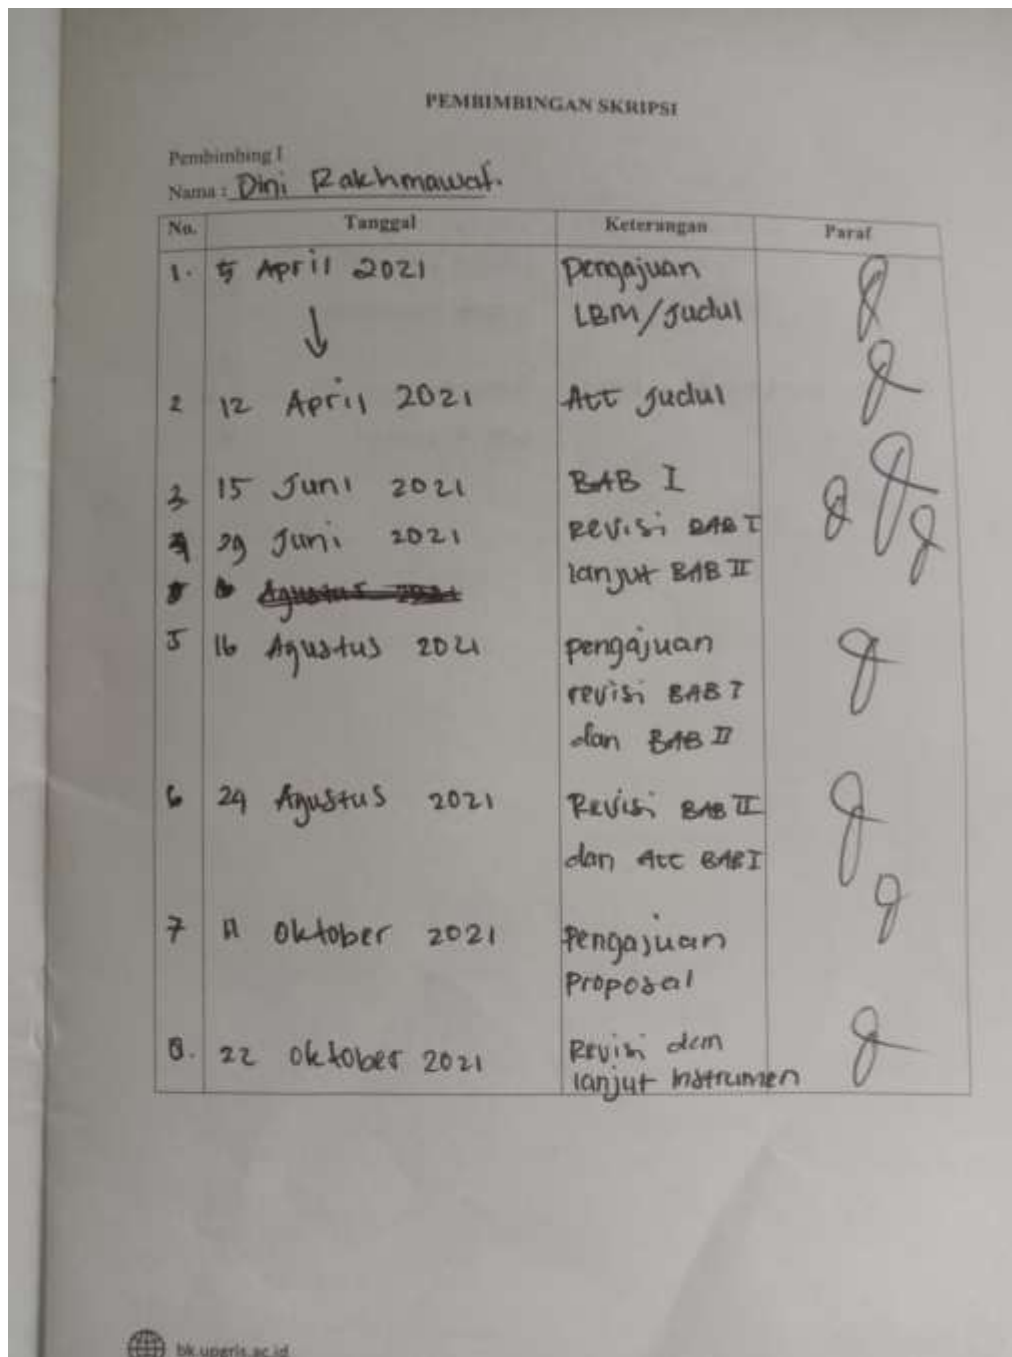 PEMBIMBINGAN SKRIPSI
Pembimbing I
Nama : Dini Rakhmawat.
No. Tanggal Keterangan Paraf
1. 5 April 2021 Pengajuan
LBM/Judul
↓
2 12 April 2021 Acc Judul
3 15 Juni 2021 BAB I
4 29 Juni 2021 Revisi BAB I
lanjut BAB II
Agustus 2021
5 16 Agustus 2021 pengajuan
revisi BAB I
dan BAB II
6 24 Agustus 2021 Revisi BAB II
dan Acc BAB I
7 11 Oktober 2021 Pengajuan
Proposal
8. 22 Oktober 2021 Revisi dan
lanjut Instrumen
bk.upgris.ac.id